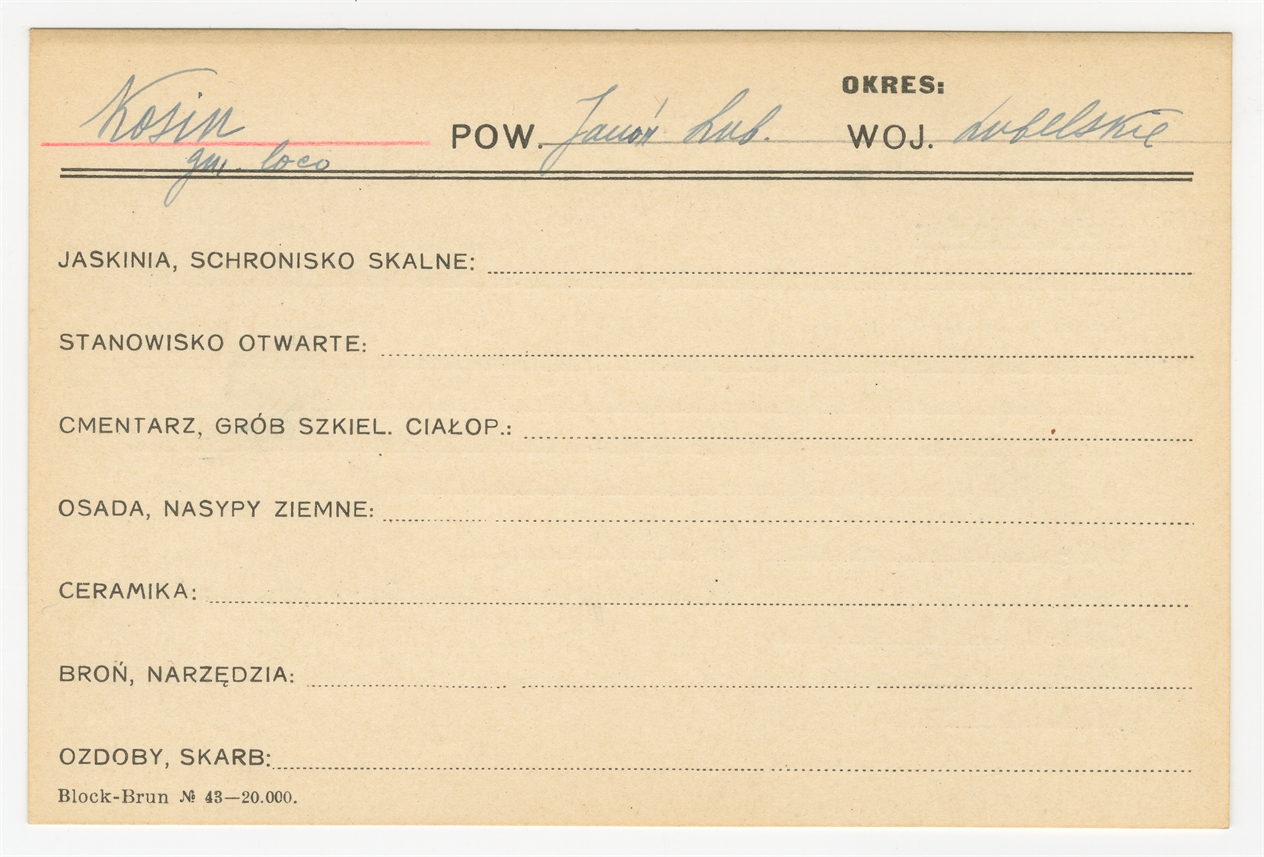 OKRES:
Kosin POW. Janów Lub. WOJ. Lubelskie
gm. loco
JASKINIA, SCHRONISKO SKALNE:
STANOWISKO OTWARTE:
CMENTARZ, GRÓB SZKIEL. CIAŁOP.:
OSADA, NASYPY ZIEMNE:
CERAMIKA:
BROŃ, NARZĘDZIA:
OZDOBY, SKARB:
Block-Brun № 43—20.000.